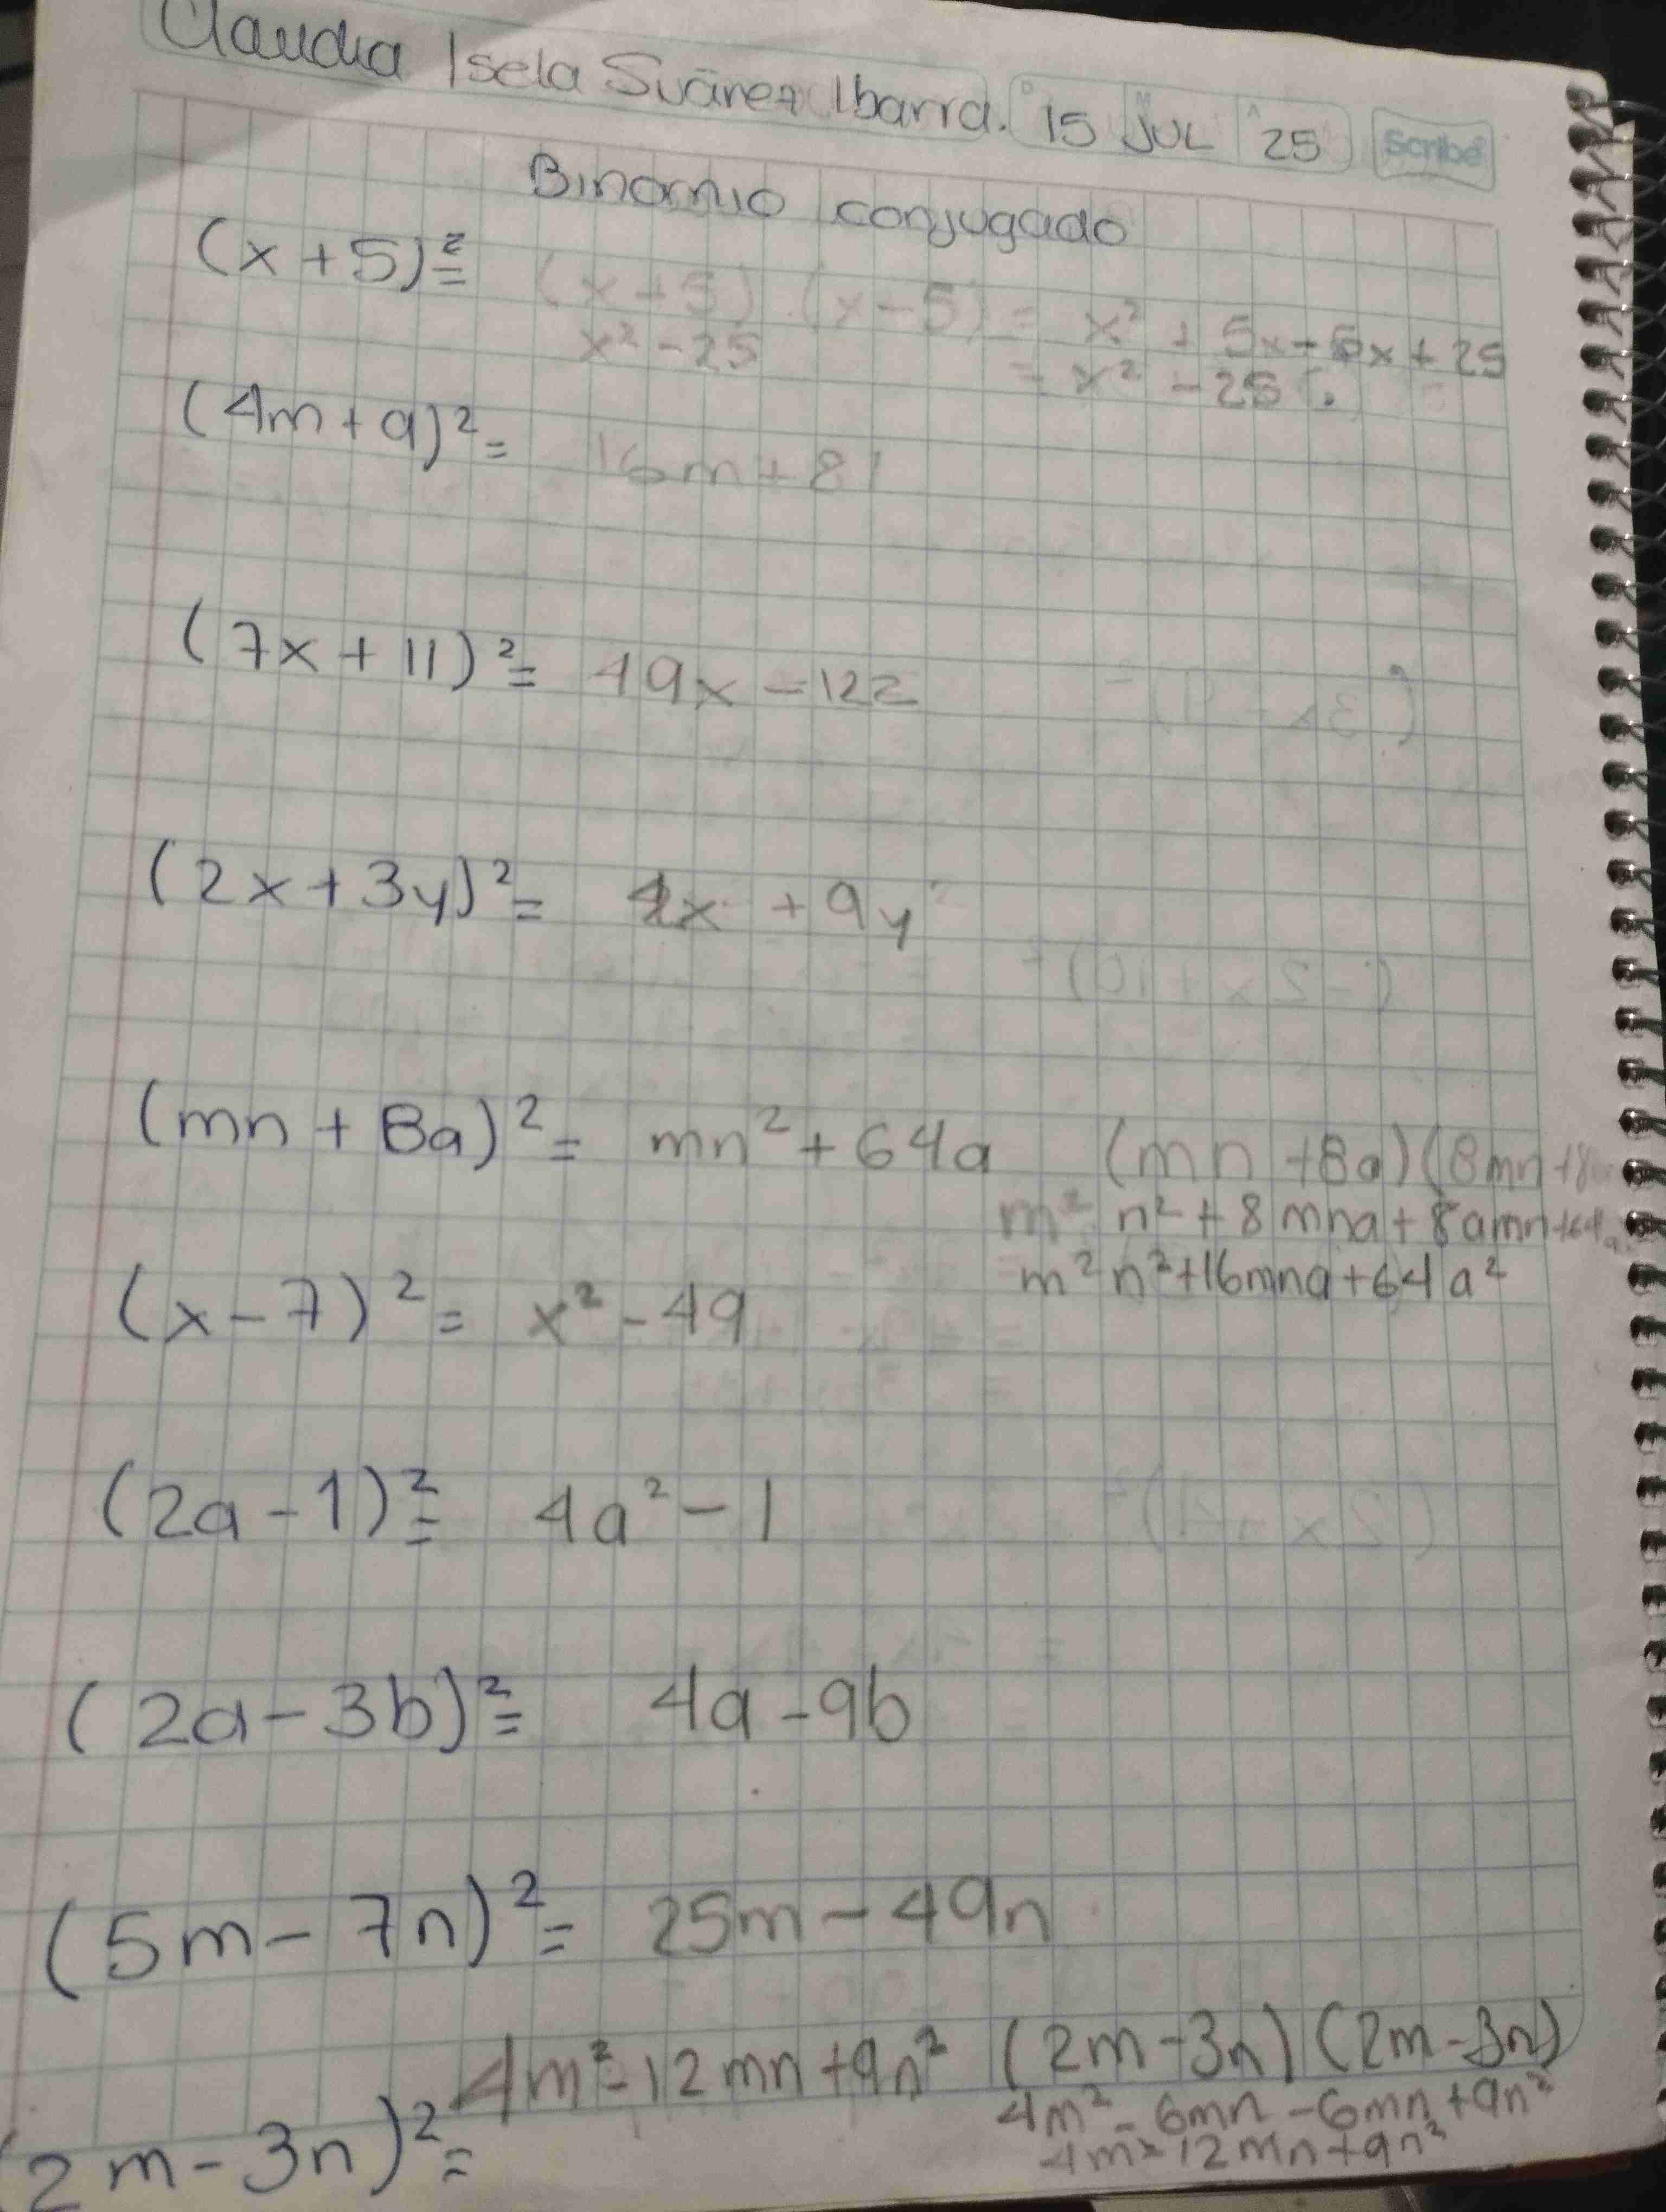 Claudia Isela Suárez Ibarra. 15 JUL 25 Scribe
Binomio conjugado
(x + 5)² = (x + 5) (x - 5) = x² + 5x - 5x + 25
x² - 25 = x² - 25
(4m + 9)² = 16m + 81
(7x + 11)² = 49x - 122
(2x + 3y)² = 4x + 9y
(mn + 8a)² = mn² + 64a (mn + 8a) (8mn + 8
m² n² + 8mna + 8amn + 64a
m² n² + 16mna + 64a²
(x - 7)² = x² - 49
(2a - 1)² = 4a² - 1
(2a - 3b)² = 4a - 9b
(5m - 7n)² = 25m - 49n
4m² - 12mn + 9n² (2m - 3n) (2m - 3n)
4m² - 6mn - 6mn + 9n²
4m² 12mn + 9n²
(2m - 3n)² =